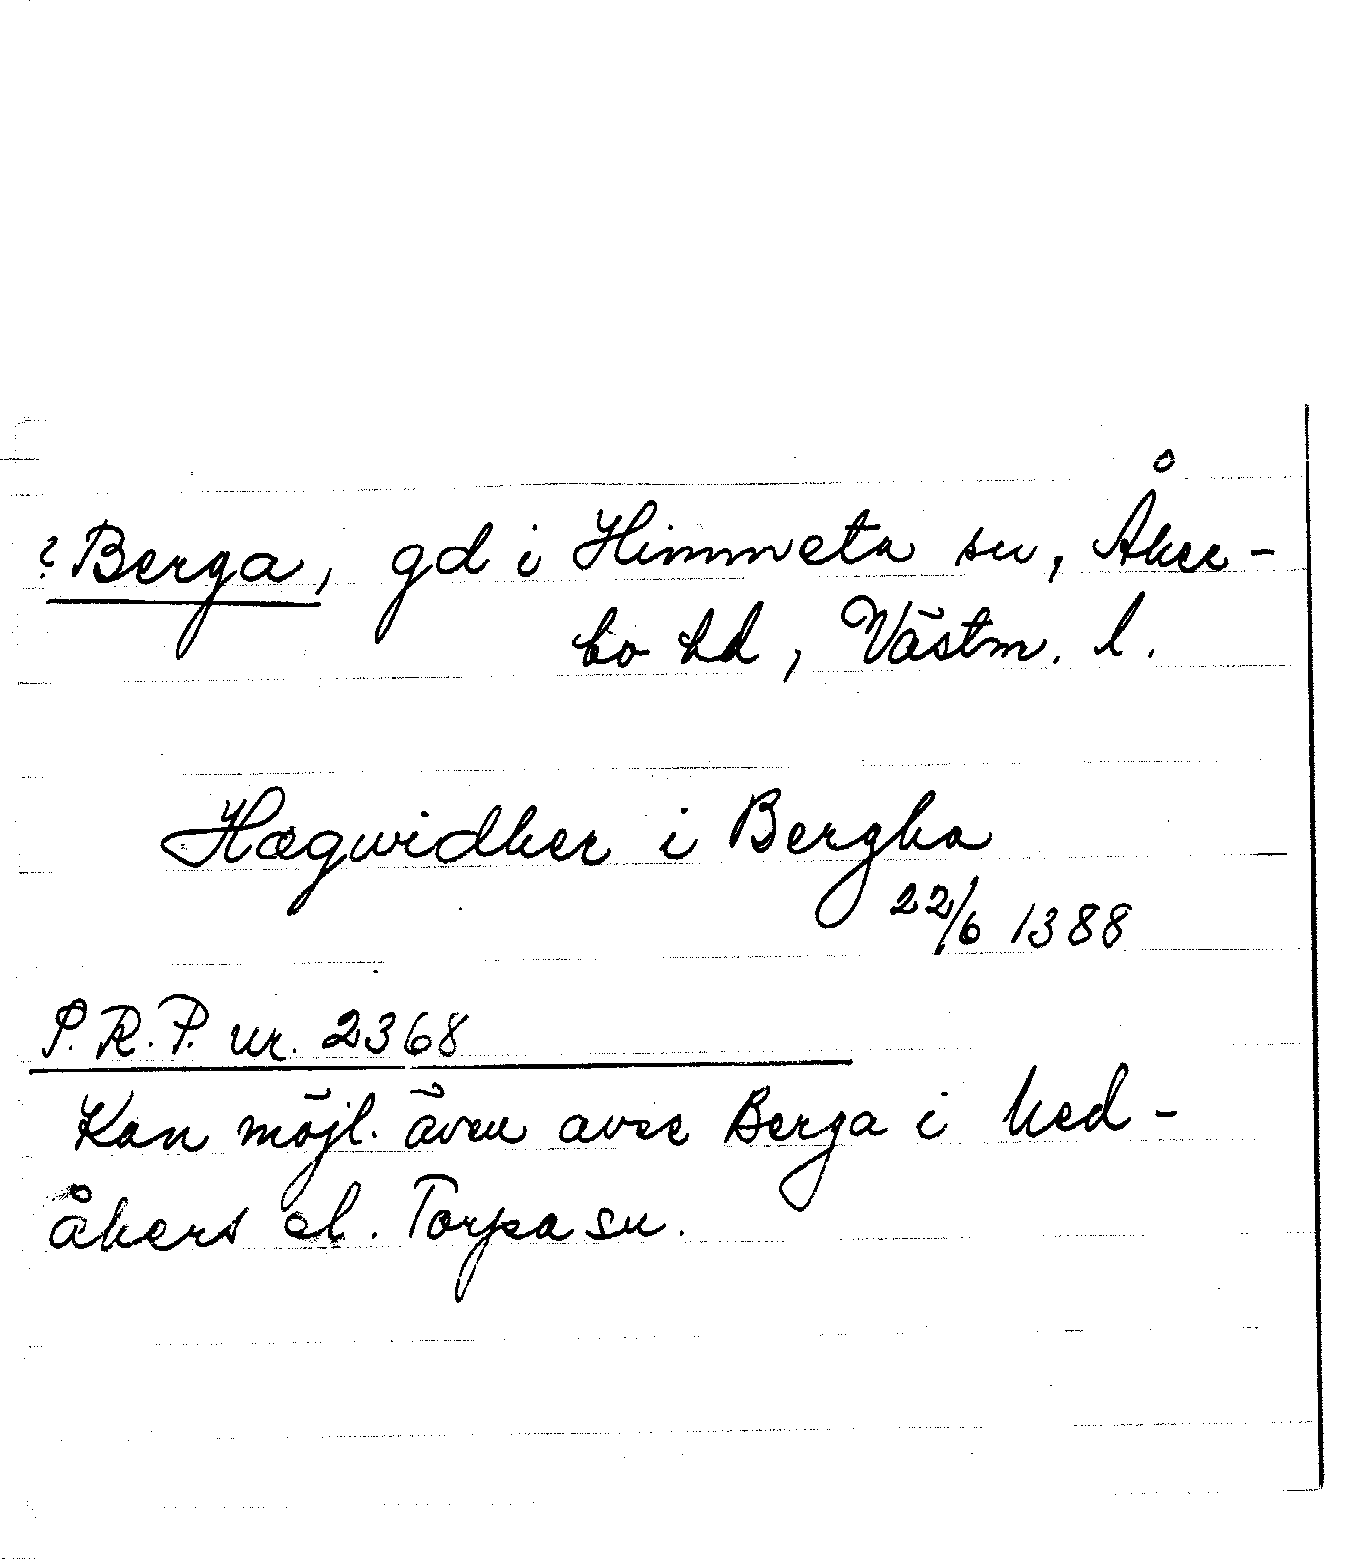 ? Berga, gd i Himmeta sn, Åker-
bo hd, Västm. l.
Hægwidher i Bergha
22/6 1388
P.R.P. nr. 2368
Kan möjl. även avse Berga i Med-
åkers el. Torpa sn.